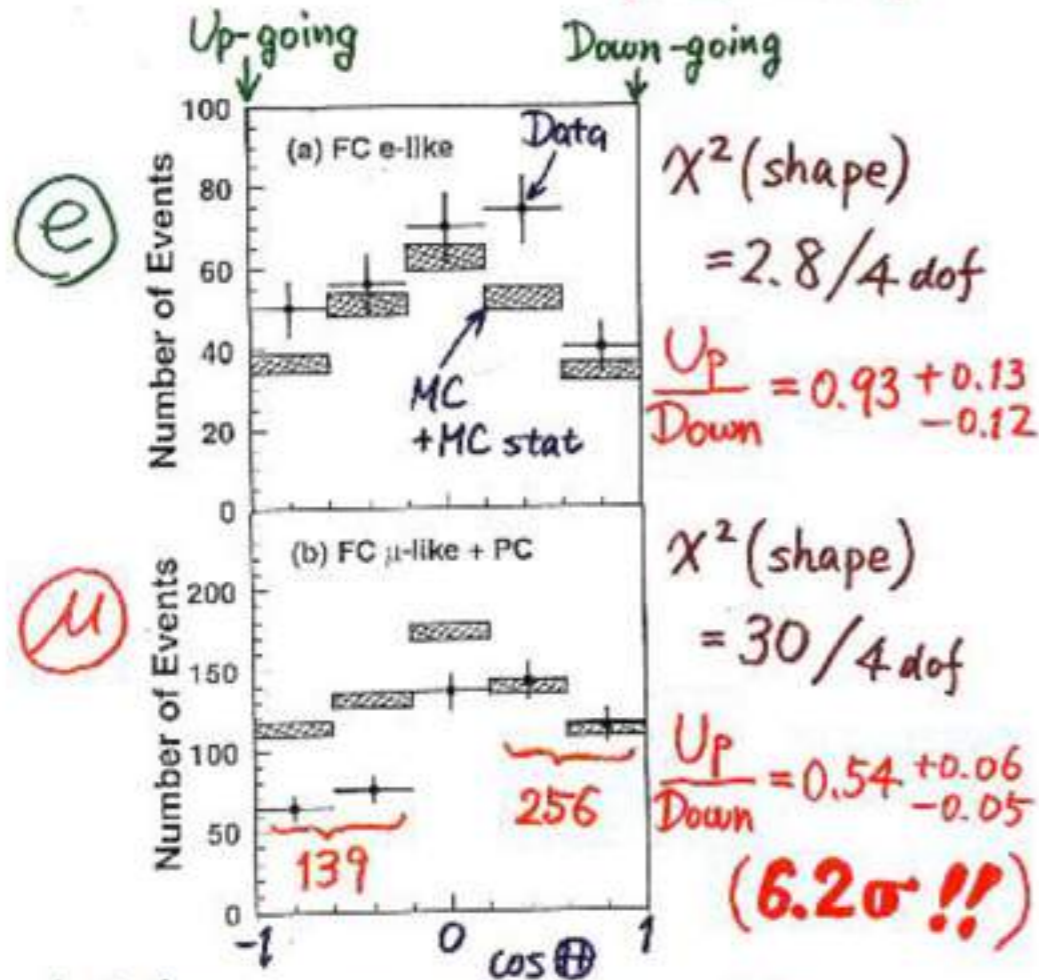 Up-going
Down-going
100
80
60
40
20
0
Number of Events
(a) FC e-like
Data
MC
+MC stat
e
χ²(shape)
= 2.8/4 dof
Up/Down = 0.93 +0.13 -0.12
200
150
100
50
0
Number of Events
(b) FC μ-like + PC
139
256
μ
χ²(shape)
= 30/4 dof
Up/Down = 0.54 +0.06 -0.05
(6.2σ!!)
-1 0 1
cos Θ